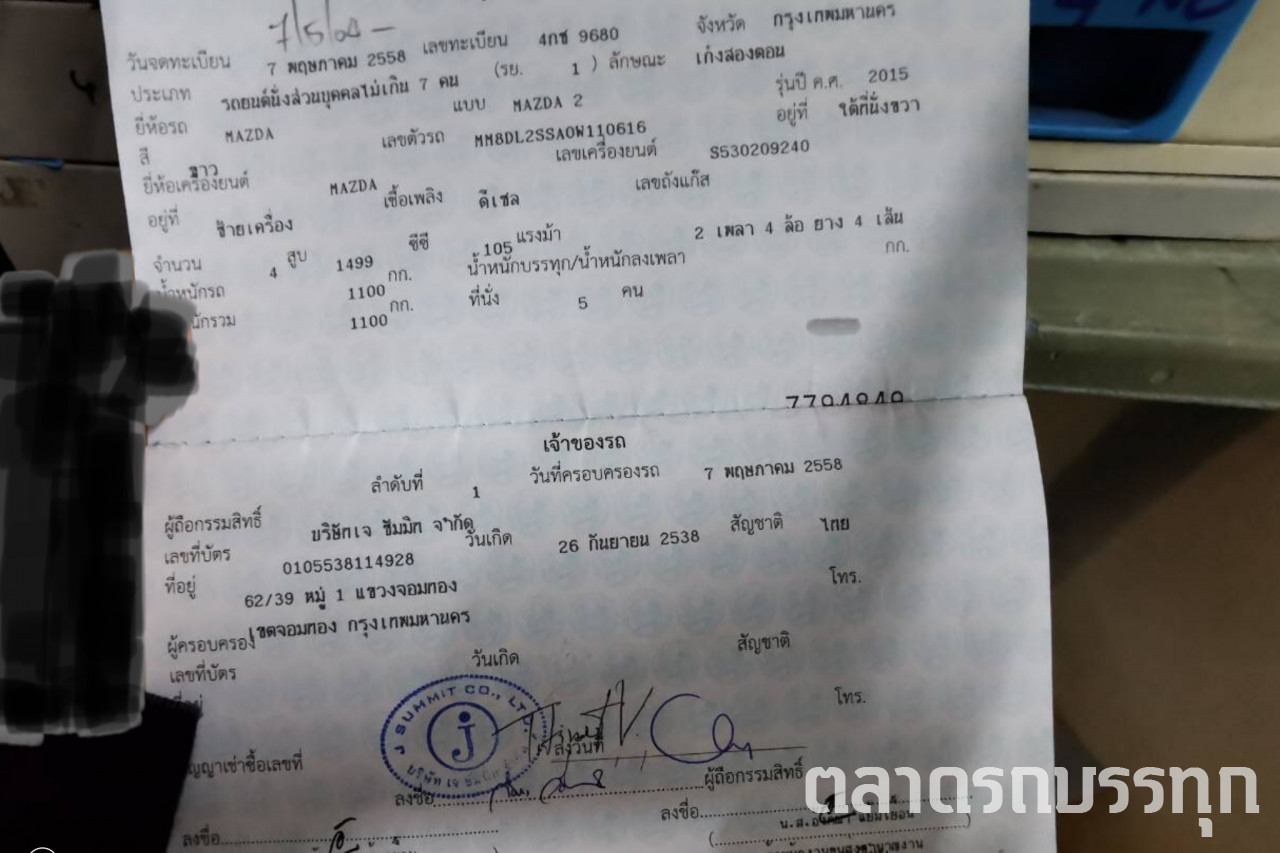 7/5/60 -
วันจดทะเบียน 7 พฤษภาคม 2558 เลขทะเบียน 4กช 9680 จังหวัด กรุงเทพมหานคร
ประเภท รถยนต์นั่งส่วนบุคคลไม่เกิน 7 คน (รย. 1 ) ลักษณะ เก๋งสองตอน
ยี่ห้อรถ MAZDA แบบ MAZDA 2 รุ่นปี ค.ศ. 2015
สี ขาว เลขตัวรถ MM8DL2SSA0W110616 อยู่ที่ ใต้ที่นั่งขวา
ยี่ห้อเครื่องยนต์ MAZDA เลขเครื่องยนต์ S530209240
อยู่ที่ ซ้ายเครื่อง เชื้อเพลิง ดีเซล เลขถังแก๊ส
จำนวน 4 สูบ 1499 ซีซี 105 แรงม้า 2 เพลา 4 ล้อ ยาง 4 เส้น
น้ำหนักรถ 1100 กก. น้ำหนักบรรทุก/น้ำหนักลงเพลา กก.
นักรวม 1100 กก. ที่นั่ง 5 คน
7794849
เจ้าของรถ
ลำดับที่ 1 วันที่ครอบครองรถ 7 พฤษภาคม 2558
ผู้ถือกรรมสิทธิ์ บริษัทเจ ซัมมิท จำกัด
เลขที่บัตร 0105538114928 วันเกิด 26 กันยายน 2538 สัญชาติ ไทย
ที่อยู่ 62/39 หมู่ 1 แขวงจอมทอง โทร.
เขตจอมทอง กรุงเทพมหานคร
ผู้ครอบครอง
เลขที่บัตร วันเกิด สัญชาติ
โทร.
J SUMMIT CO., LTD.
J
บริษัท เจ ซัมมิท
ญญาเช่าซื้อเลขที่ ลงวันที่
ลงชื่อ ผู้ถือกรรมสิทธิ์
ลงชื่อ ลงชื่อ
น.ส. แย้มเยื้อน
ตลาดรถบรรทุก